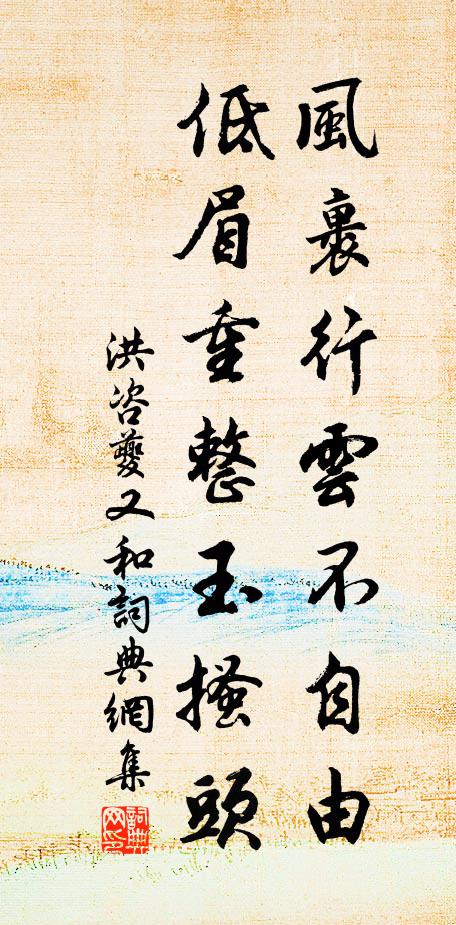 風裏行雲不自由
低眉重整玉搔頭
洪咨夔又和詞典網集
詞典网印